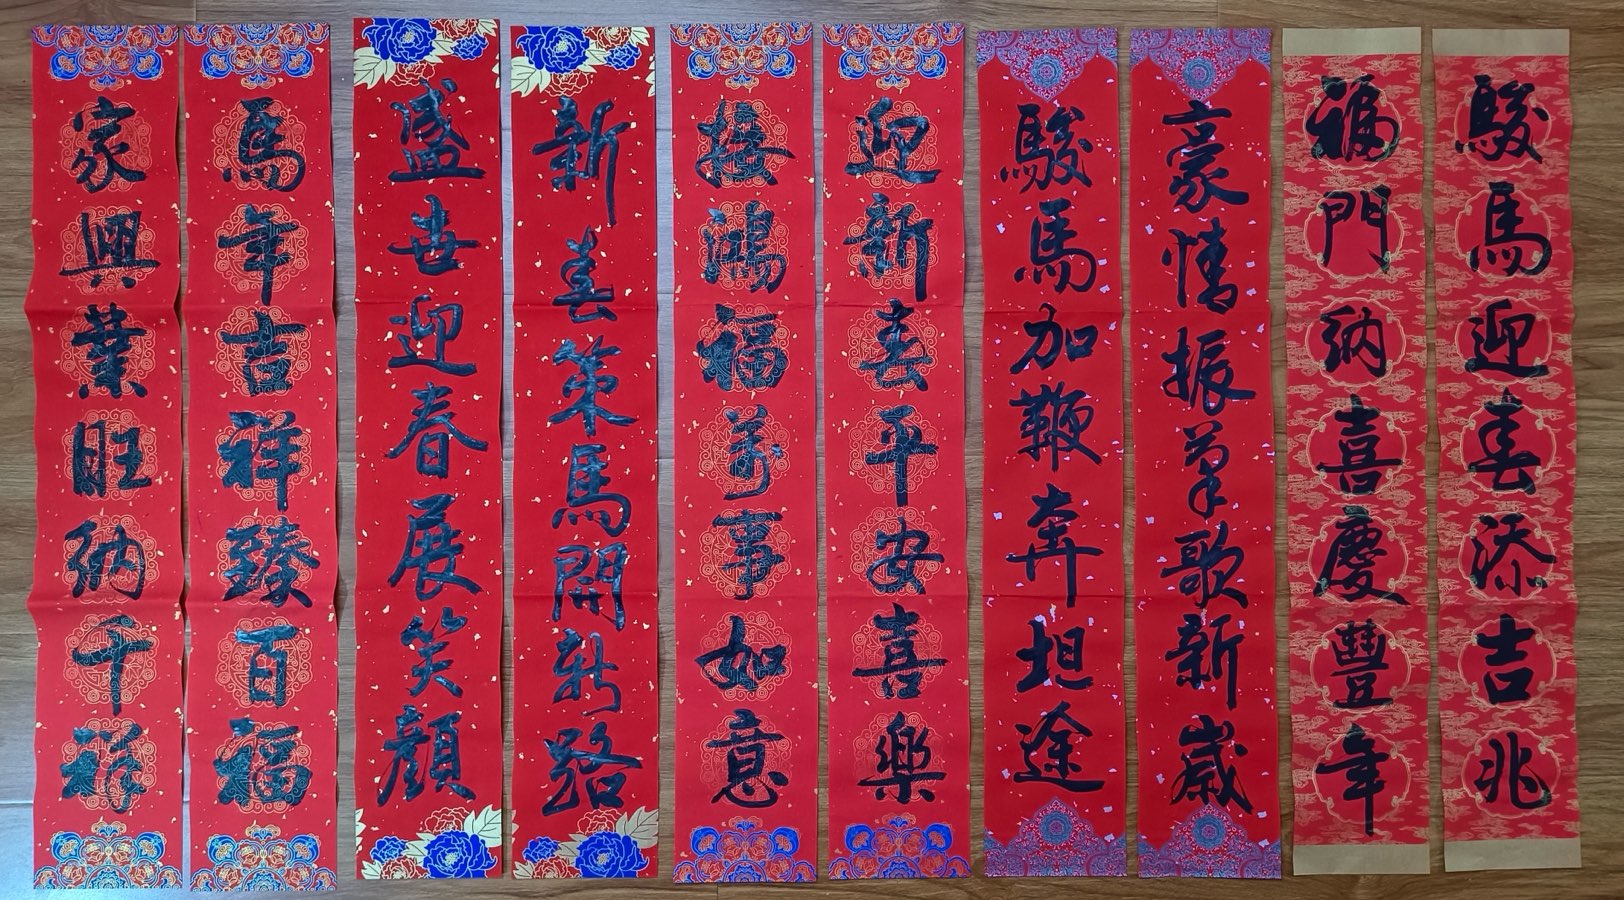 駿馬迎春添吉兆
福門納喜慶豐年
豪情振筆歌新歲
駿馬加鞭奔坦途
迎新春平安喜樂
接鴻福萬事如意
新春策馬開新路
盛世迎春展笑顔
馬年吉祥臻百福
家興業旺納千祥